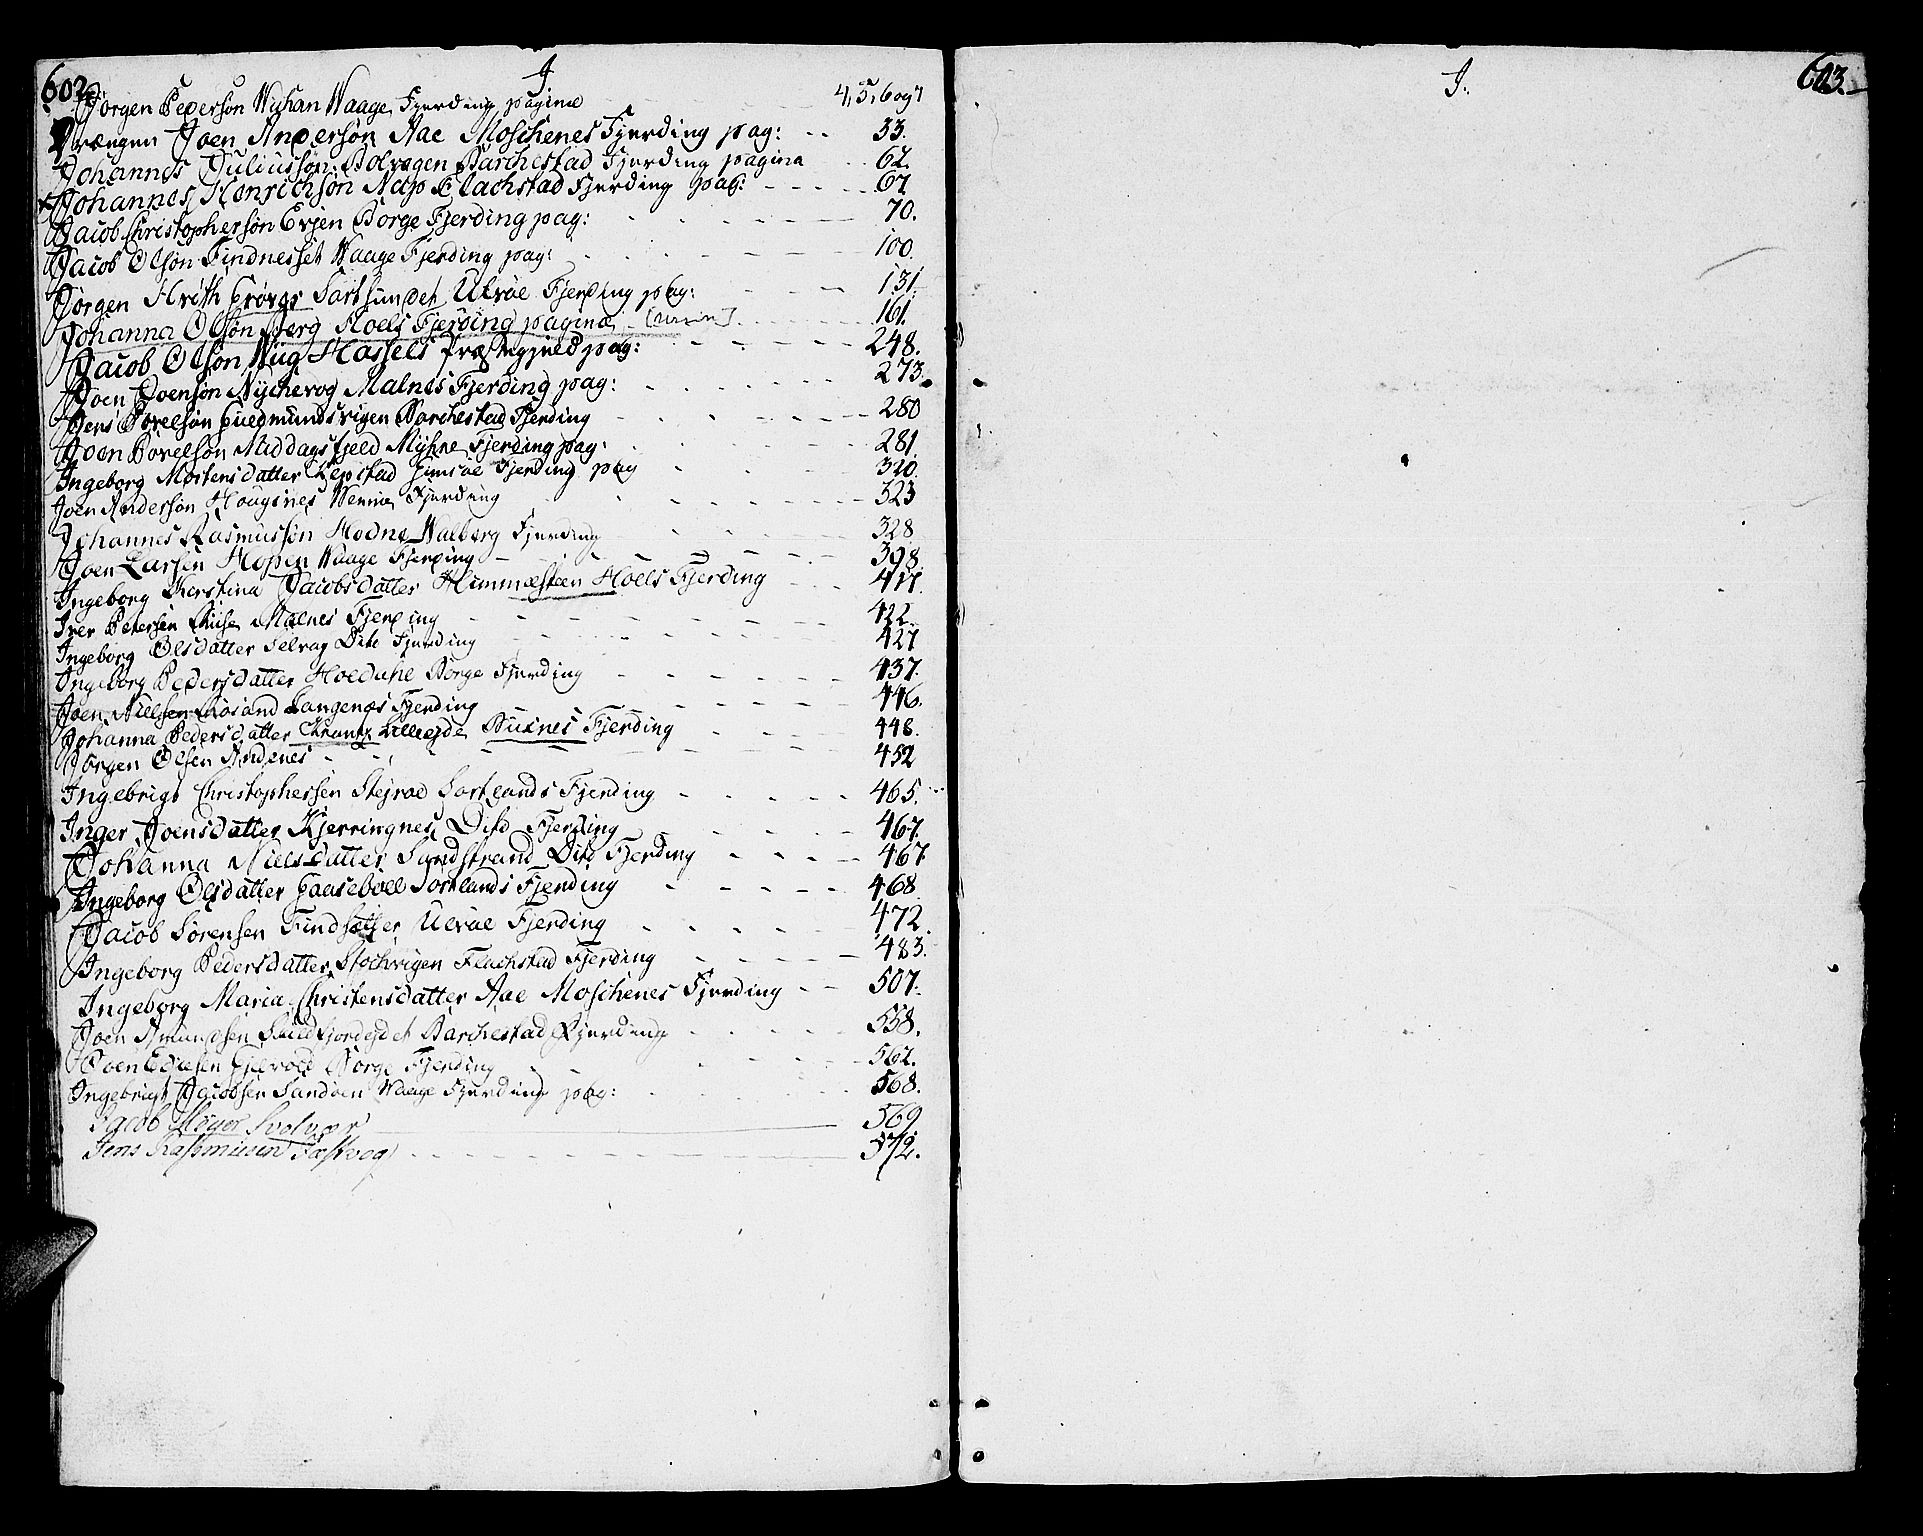 602.
J.
Jørgen Pedersøn Wighan Waage Fjerding pagina 4, 5, 6 og 7
Drængen Joen Andersøn Aae Moschenes Fjerding pag: 33.
Johannes Juliussøn Bolvogen Barchestad Fjerding pagina 62.
Johannes Henrichsøn Nap Flachstad Fjerding pag: 67
Jacob Christophersøn Evjen Borge Fjerding pag: 70.
Jacob Olsøn Findnesset Waage Fjerding pag: 100.
Jørgen Hvith Sortsundet Ulvøe Fjerding pag: 131.
Johanna Olsøn Berg Hoels Fjerding pagina 161.
Jacob Olsøn Wiig Hassels Præstegield pag: 248.
Joen Joensøn Nychevog Malnes Fjerding pag: 273.
Jens Povelsøn Guldmundsvigen Barchestad Fjerding 280
Joen Povelsøn Middagsfjeld Myhre Fjerding pag: 281.
Ingeborg Mortensdatter Gimsøe Fjerding pag 320.
Joen Andersøn Hougsnes Fjerding 323
Johannes Rasmussøn Hodne Walberg Fjerding 328
Joen Larsen Hopen Waage Fjerding 398.
Ingeborg Kerstina Jacobsdatter Himmelsteen Hoels Fjerding 411.
Iver Petersen Malnes Fjerding 422.
Ingeborg Olsdatter Selvag Dito Fjerding 427
Ingeborg Pedersdatter Borge Fjerding 437.
Joen Nielsen Langenæs Fjerding 446.
Johanna Pedersdatter Krantz Lilleejde Buxnes Fjerding 448.
Jørgen Olsen Andenes 452
Ingebrigt Christophersen Stejroe Sortlands Fjerding 465.
Inger Joensdatter Kjerringnes Dito Fjerding 467.
Johanna Nielsdatter Sandstrand Dito Fjerding 467
Ingeborg Olsdatter Gaasebøll Sortlands Fjerding 468
Jacob Sørensen Findsætter Ulvøe Fjerding 472.
Ingeborg Pedersdatter Stochvigen Flachstad Fjerding 483.
Ingeborg Maria Christensdatter Aae Moschenes Fjerding 507.
Joen Amundsen Skudfjordejdet Barchestad Fjerding 558.
Joen Borge Fjerding 562.
Ingebrigt Jacobsen Sandøen Waage Fjerding pag: 568.
Jacob Meyer Svolvær 569
Jens Rasmusen Fæstvog 572.
J.
603.